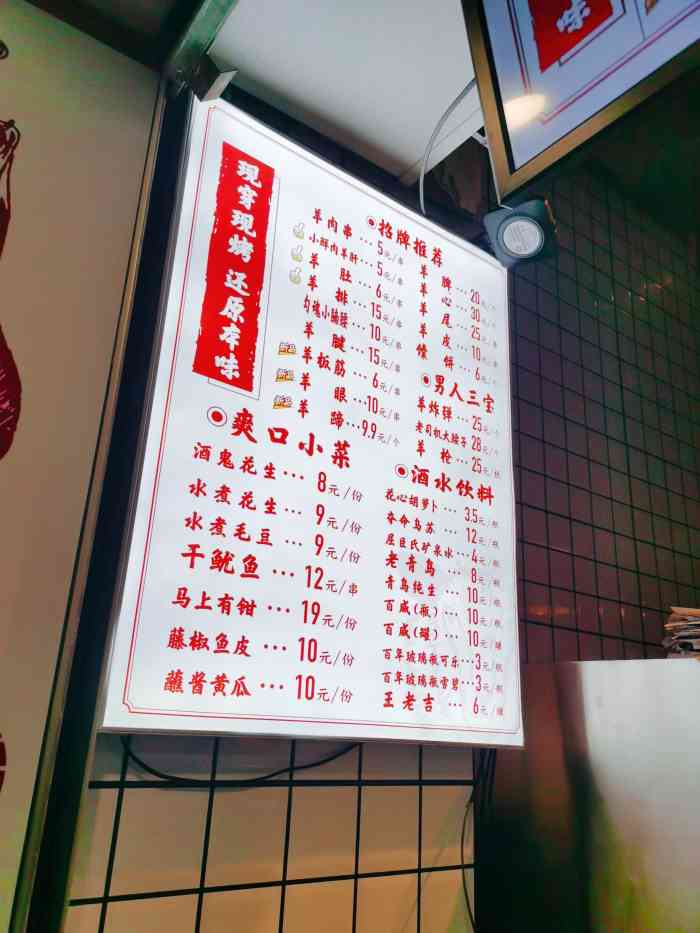 味
现穿现烤 还原本味
招牌推荐
羊肉串···5元/串
小鲜肉羊肝···5元/串
羊肚···6元/串
羊排···15元/串
勾魂小腩腰···10元/串
羊腱···15元/串
新品 羊板筋···6元/串
新品 羊眼···10元/串
新品 羊蹄···9.9元/个
羊脾···20元/个
羊心···30元/个
羊尾···25元/串
羊皮···10元/串
馕饼···6元/个
男人三宝
羊炸弹···25元/个
老司机大腰子28元/个
羊枪···25元/根
爽口小菜
酒鬼花生···8元/份
水煮花生···9元/份
水煮毛豆···9元/份
干鱿鱼···12元/串
马上有钳···19元/份
藤椒鱼皮···10元/份
蘸酱黄瓜···10元/份
酒水饮料
花心胡萝卜···3.5元/瓶
夺命乌苏···12元/瓶
屈臣氏矿泉水···4元/瓶
老青岛···8元/瓶
青岛纯生···10元/瓶
百威(瓶)···10元/瓶
百威(罐)···10元/罐
百年玻璃瓶可乐···3元/瓶
百年玻璃瓶雪碧···3元/瓶
王老吉···6元/罐